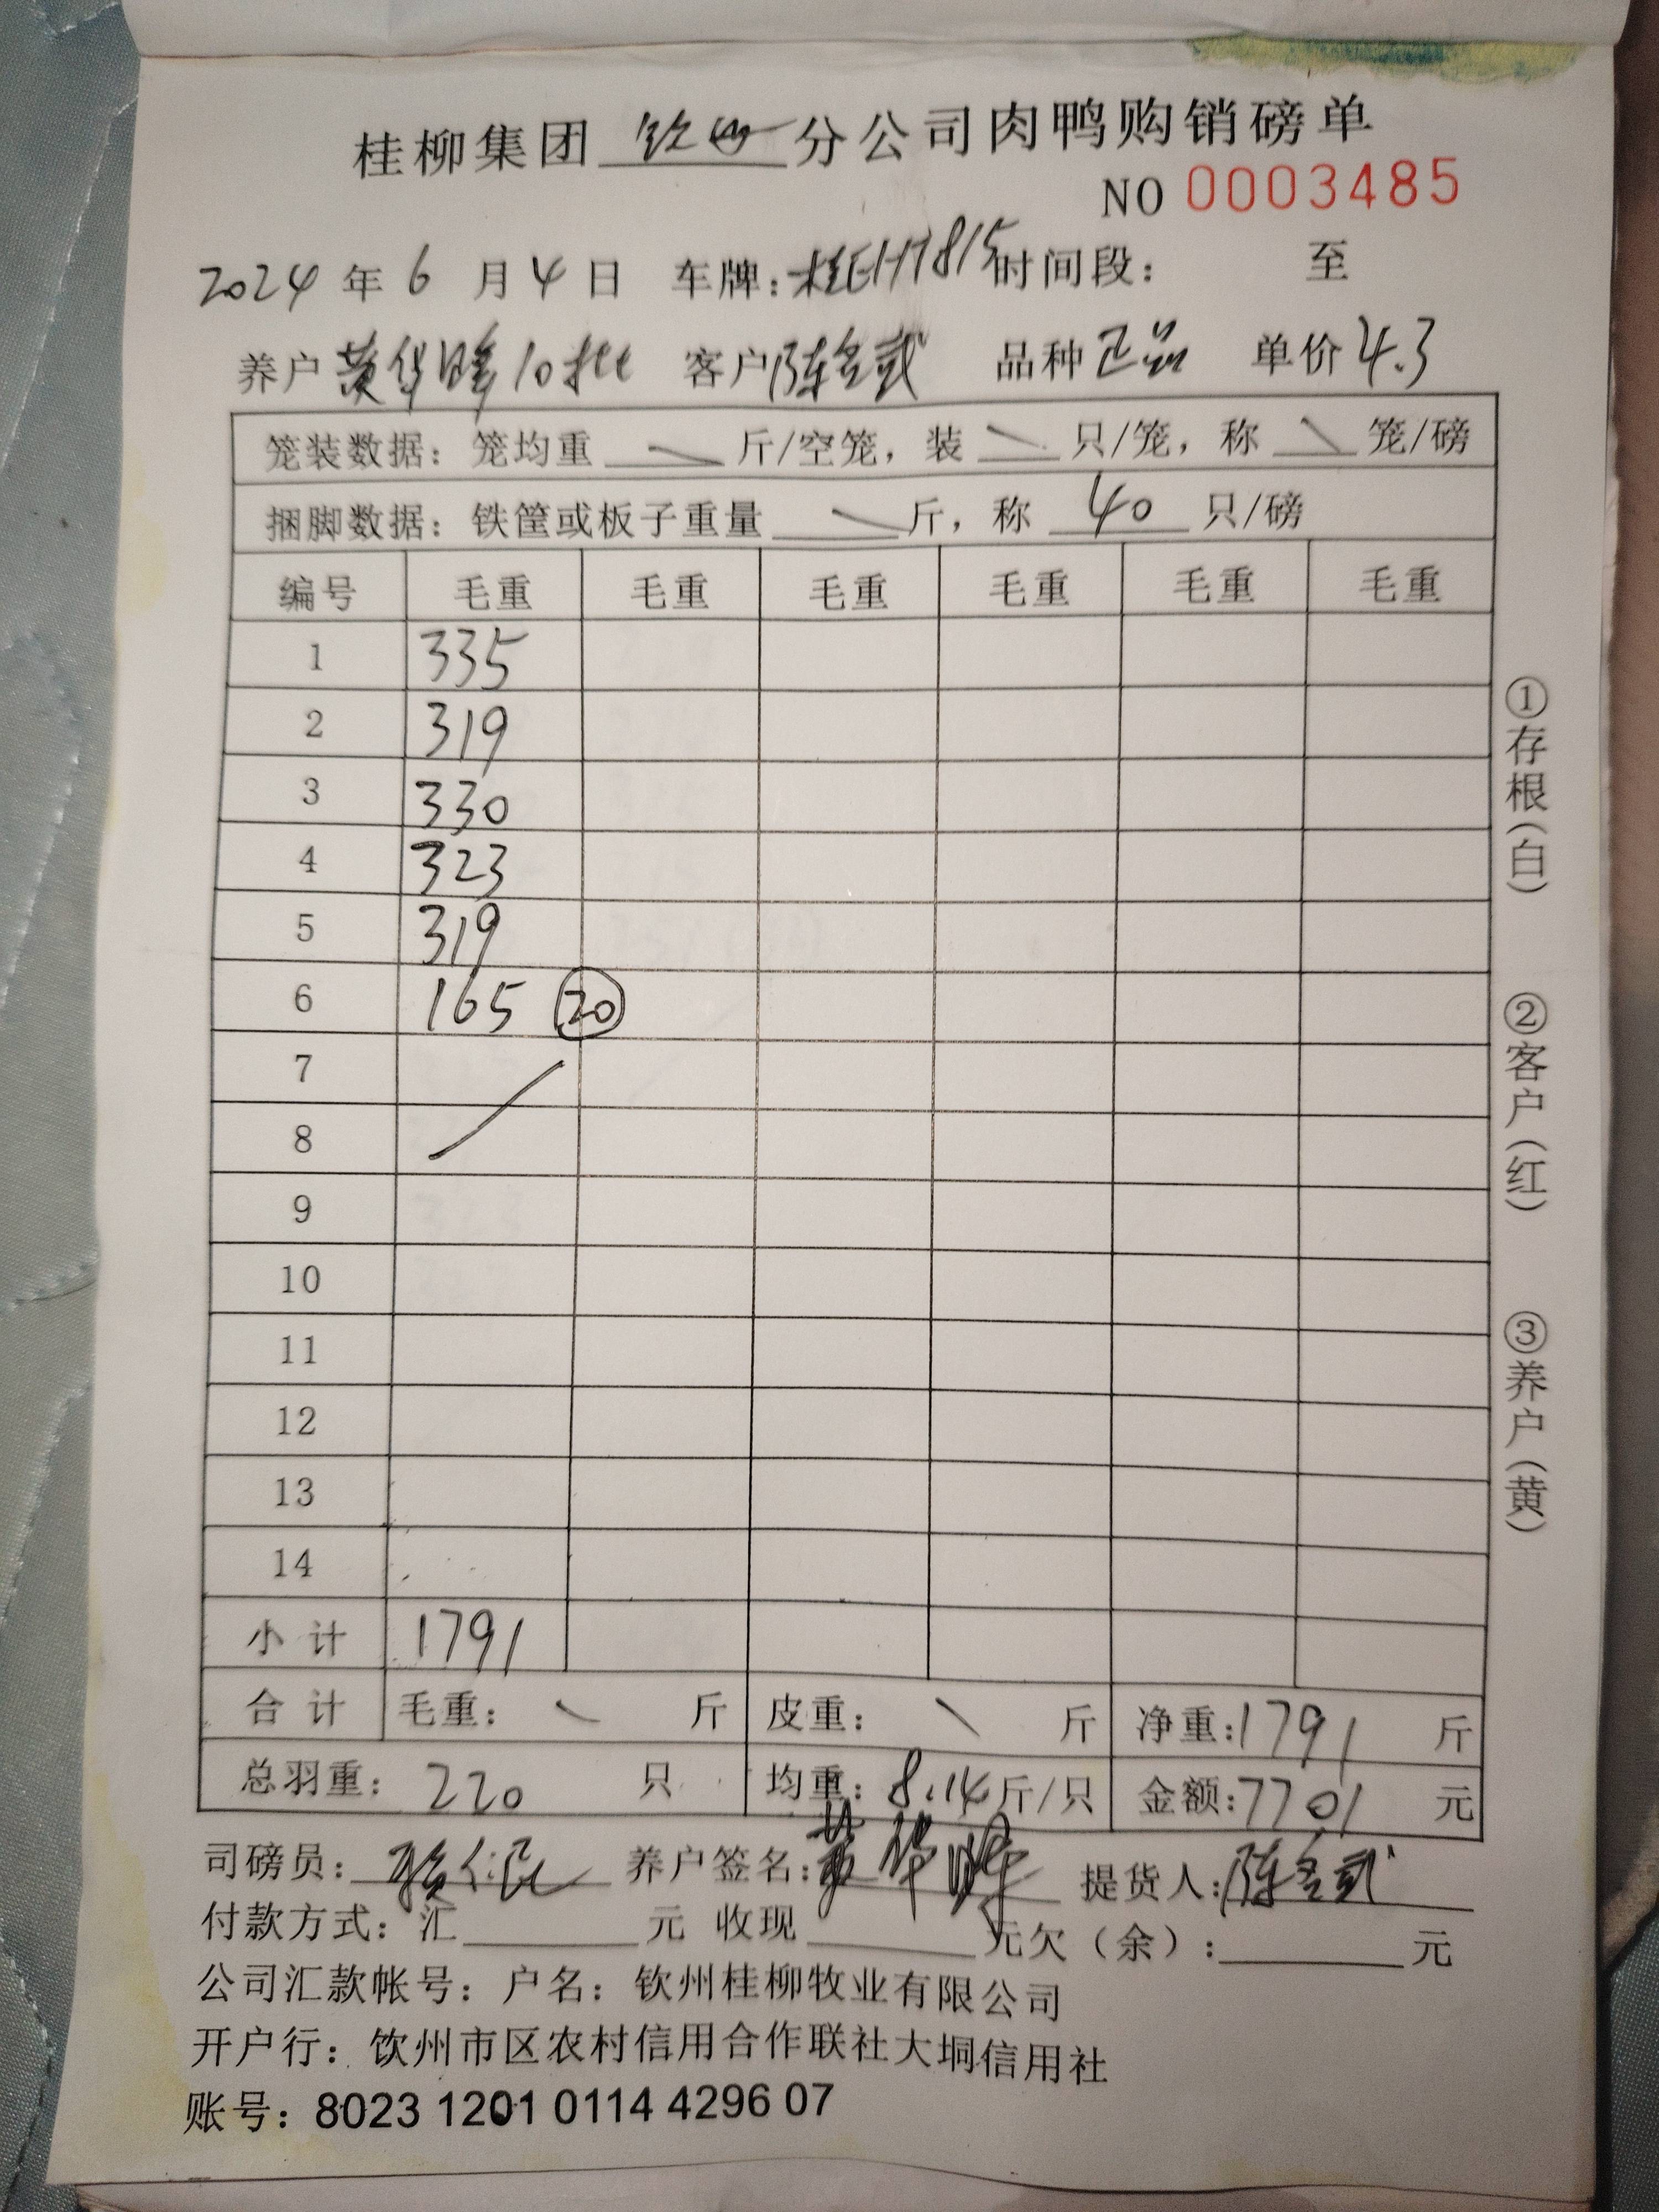 桂柳集团 钦州 分公司肉鸭购销磅单
NO 0003485
2024 年 6 月 4 日 车牌: 桂EH7815 时间段: 至
养户 黄华晖 10批 客户 陈名贰 品种 正品 单价 4.3
笼装数据: 笼均重 \ 斤/空笼, 装 \ 只/笼, 称 \ 笼/磅
捆脚数据: 铁筐或板子重量 \ 斤, 称 40 只/磅
编号 毛重 毛重 毛重 毛重 毛重 毛重
1 335
2 319
3 330
4 323
5 319
6 165 20
7
8
9
10
11
12
13
14
小计 1791
合计 毛重: \ 斤 皮重: \ 斤 净重: 1791 斤
总羽重: 220 只 均重: 8.14 斤/只 金额: 7701 元
司磅员: 养户签名: 黄华晖 提货人: 陈名贰
付款方式: 汇 元 收现 元 欠（余）: 元
公司汇款帐号: 户名: 钦州桂柳牧业有限公司
开户行: 钦州市区农村信用合作联社大垌信用社
账号: 8023 1201 0114 4296 07
①存根(白)
②客户(红)
③养户(黄)